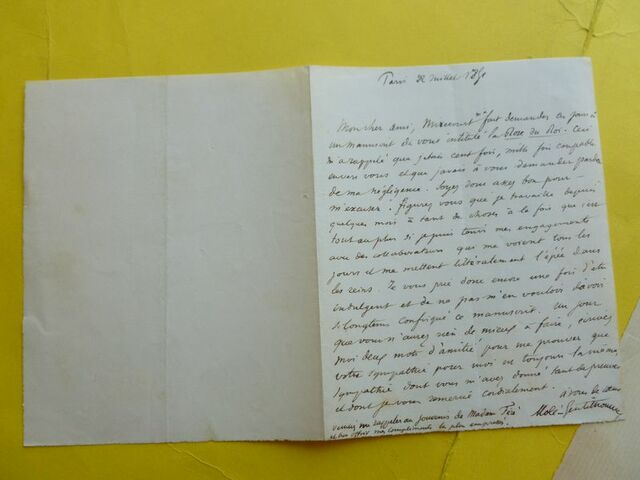 Paris 22 Juillet 1851
Mon cher ami, Mirecourt m'a fait demander ces jours ci
un manuscrit de vous intitulé la Rose du Roi. Ceci
m'a rappelé que j'étais cent fois, mille fois coupable
envers vous et que j'avais à vous demander pardon
de ma négligence. Soyez donc assez bon pour
m'excuser. figurez vous que je travaille depuis
quelques mois à tant de choses à la fois que c'est
tout au plus si je puis tenir mes engagements
avec des collaborateurs que me voient tous les
jours et me mettent littéralement l'épée dans
les reins. Je vous prie donc encore une fois d'être
indulgent et de ne pas m'en vouloir d'avoir
si longtems confisqué ce manuscrit. Un jour
que vous n'aurez rien de mieux à faire, écrivez
moi deux mots d'amitié pour me prouver que
votre sympathie pour moi est toujours la même
sympathie dont vous m'avez donné tant de preuves
et dont je vous remercie cordialement. à vous de cœur
veuillez me rappeler au souvenir de Madame Molé-Gentilhomme
et lui offrir mes compliments les plus empressés.